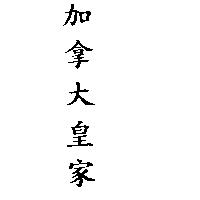 加拿大皇家